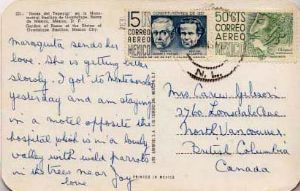 "Rosas del Tepeyac" en la Monumental Basílica de Guadalupe, Reina
de México, México, D. F.
Garden of Roses at the Shrine of
Guadalupe Basilica, Mexico City.
15
CORREO
AEREO
MEXICO
50 CTS
CORREO
AEREO
MEXICO
N. L.
Maroquita sends her
love. She is getting well
slowly. I got to Monterrey
yesterday and am staying
in a motel opposite a
hospital which is in a lovely
valley with wild parrots
in the trees near Joy
love
Mrs Carey Johnson
2760 Lonsdale Ave
North Vancouver
British Columbia
Canada
PRINTED IN MEXICO